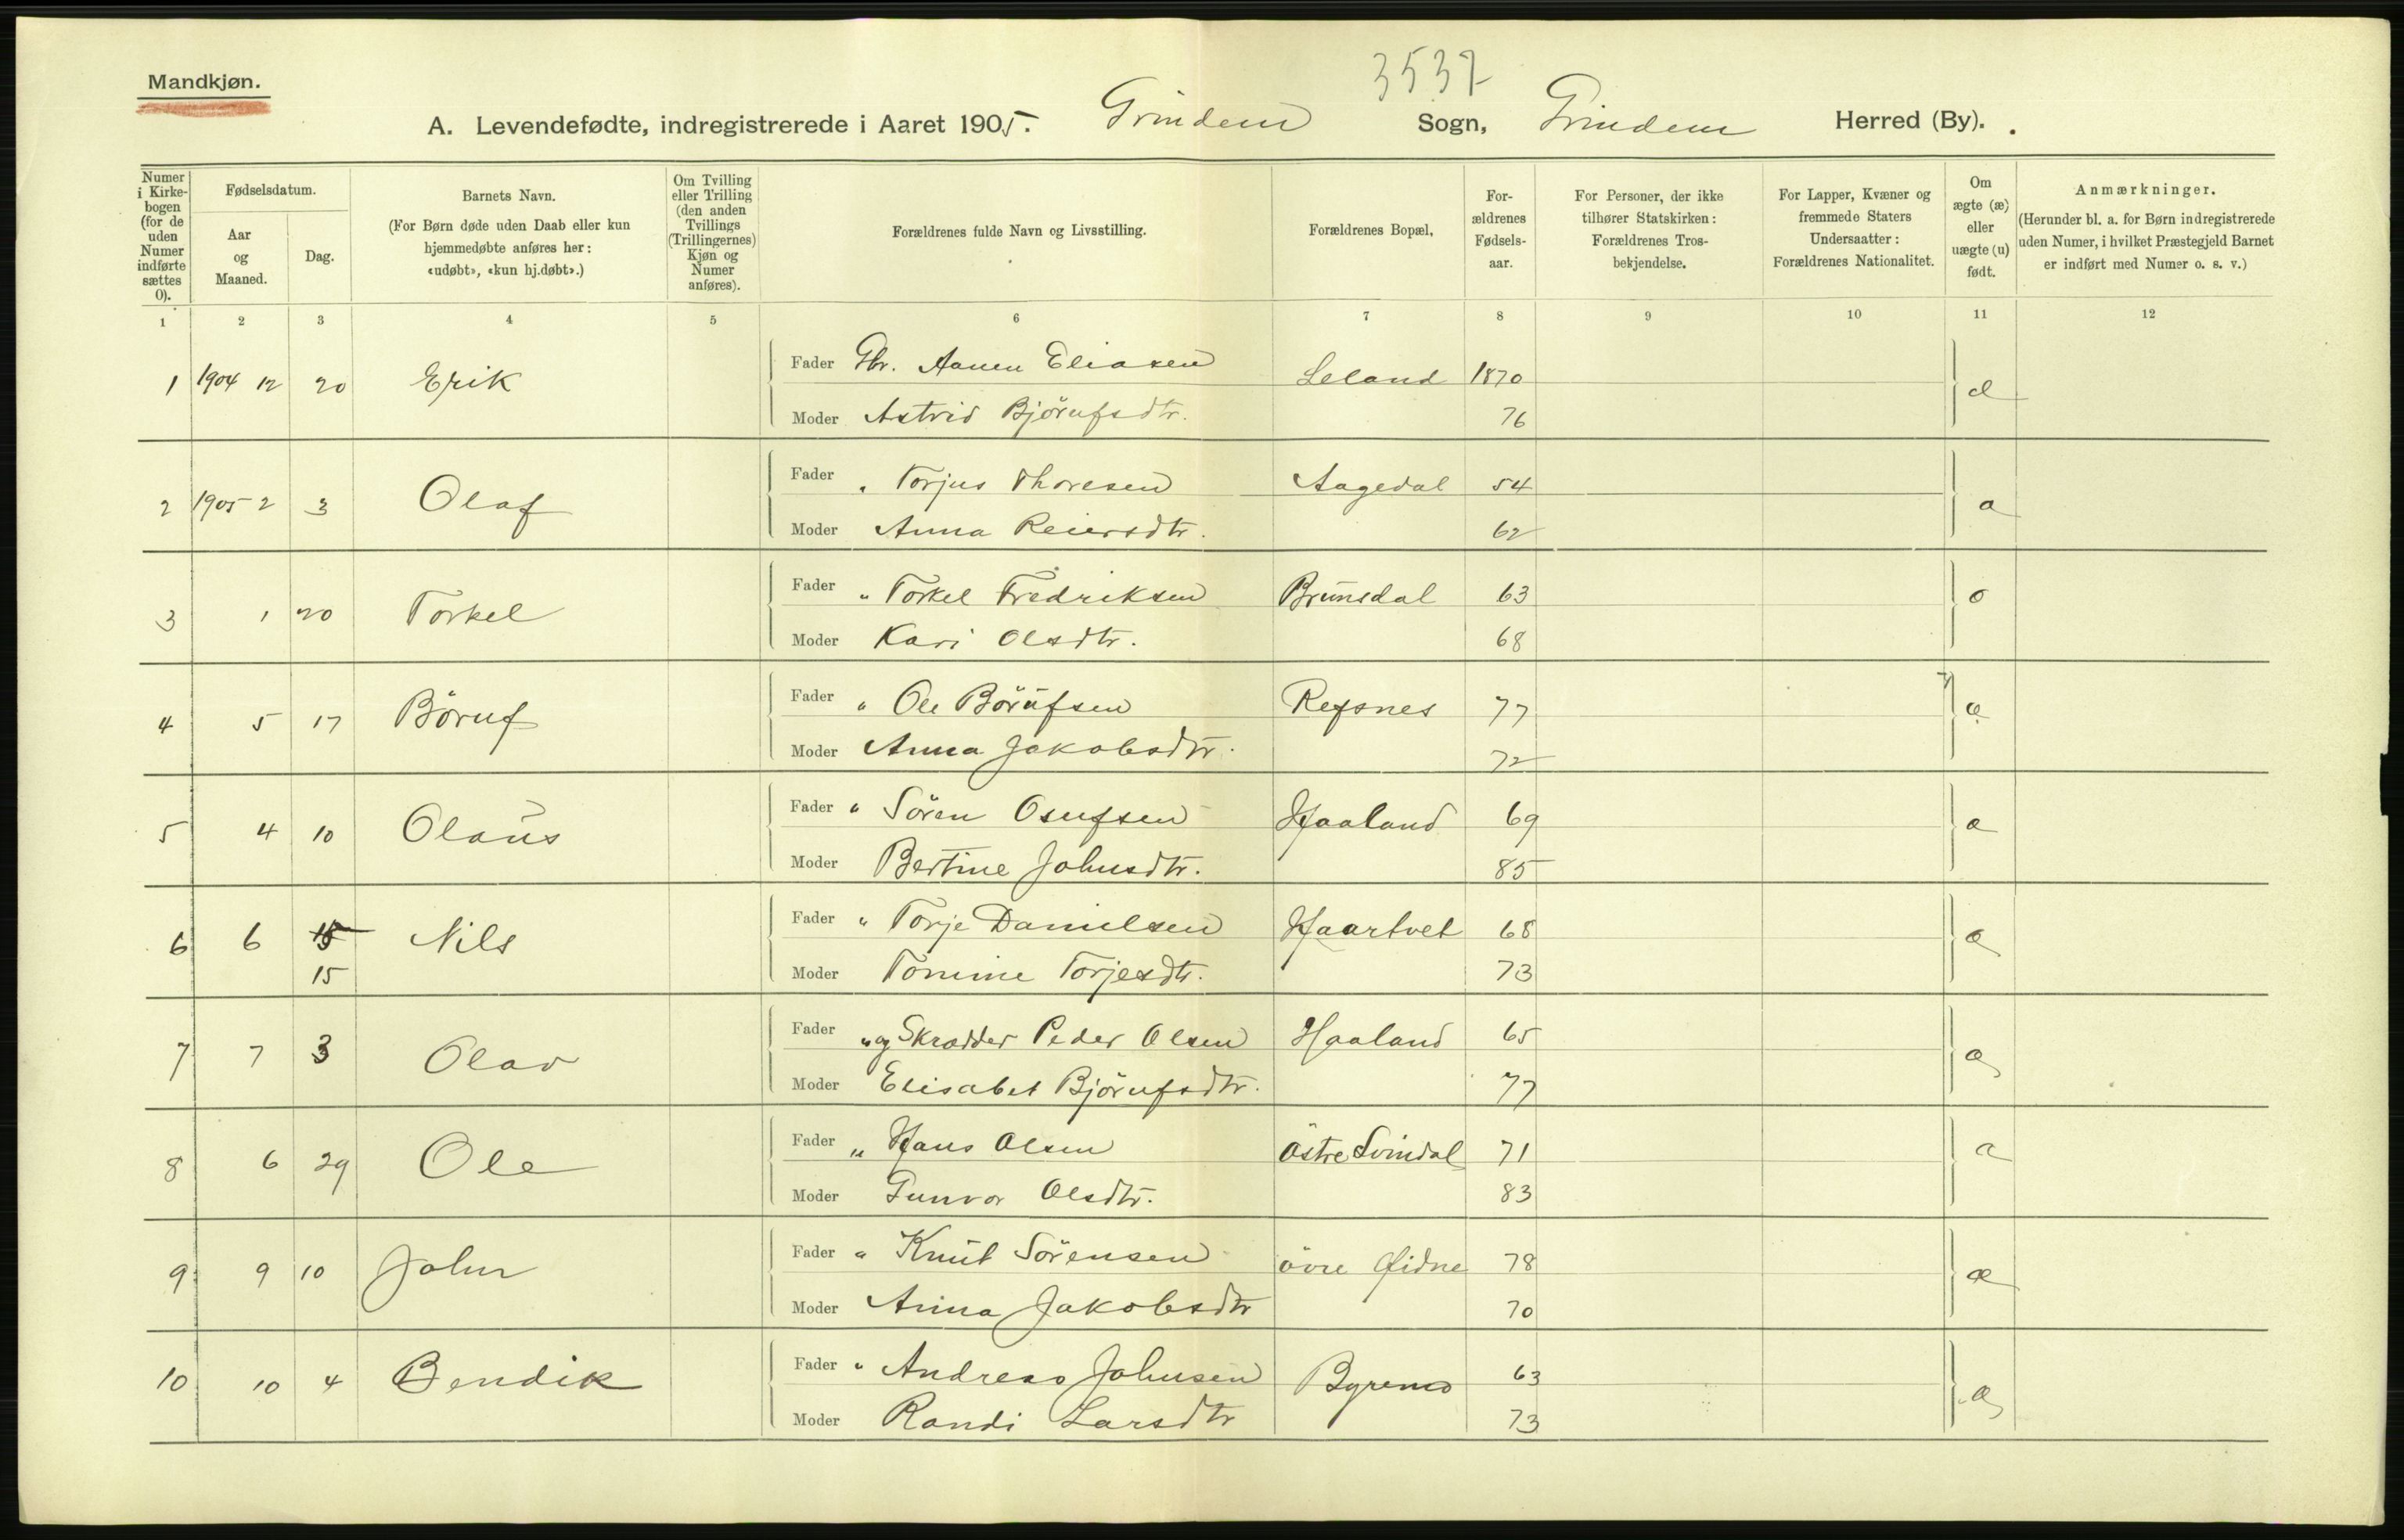 3537
Mandkjøn.
A. Levendefødte, indregistrerede i Aaret 1905. Grindem Sogn, Grindem Herred (By).
Numer i Kirkebogen (for de uden Numer indførte sættes 0).
Fødselsdatum.
Aar og Maaned.
Dag.
Barnets Navn.
(For Børn døde uden Daab eller kun hjemmedøbte anføres her: «udøbt», «kun hj.døbt».)
Om Tvilling eller Trilling (den anden Tvillings (Trillingernes) Kjøn og Numer anføres).
Forældrenes fulde Navn og Livsstilling.
Forældrenes Bopæl,
Forældrenes Fødselsaar.
For Personer, der ikke tilhører Statskirken: Forældrenes Trosbekjendelse.
For Lapper, Kvæner og fremmede Staters Undersaatter: Forældrenes Nationalitet.
Om ægte (æ) eller uægte (u) født.
Anmærkninger.
(Herunder bl. a. for Børn indregistrerede uden Numer, i hvilket Præstegjeld Barnet er indført med Numer o. s. v.)
1 2 3 4 5 6 7 8 9 10 11 12
1 1904 12 20 Erik Fader Gbr. Aanen Eliasen Leland 1870 æ
Moder Astrid Bjørufsdtr. 76
2 1905 2 3 Olaf Fader " Torjus Thoresen Aagedal 54 æ
Moder Anna Reiersdtr. 62
3 1 20 Torkel Fader " Torkel Fredriksen Brunsdal 63 æ
Moder Kari Olsdtr. 68
4 5 17 Böruf Fader " Ole Börufsen Refsnes 77 æ
Moder Anna Jakobsdtr. 72
5 4 10 Olaus Fader " Sören Osufsen Haaland 69 æ
Moder Bertine Johnsdtr. 85
6 6 15 Nils Fader " Torje Danielsen Haartvet 68 æ
15 Moder Tomine Torjesdtr. 73
7 7 3 Olav Fader " og Skrædder Peder Olsen Haaland 65 æ
Moder Elisabet Bjørufsdtr. 77
8 6 29 Ole Fader " Hans Olsen östre Svindal 71 æ
Moder Gunvor Olsdtr. 83
9 9 10 John Fader " Knut Sörensen övre Öidne 78 æ
Moder Anna Jakobsdtr 70
10 10 4 Bendik Fader " Andreas Johnsen Byremo 63 æ
Moder Randi Larsdtr 73